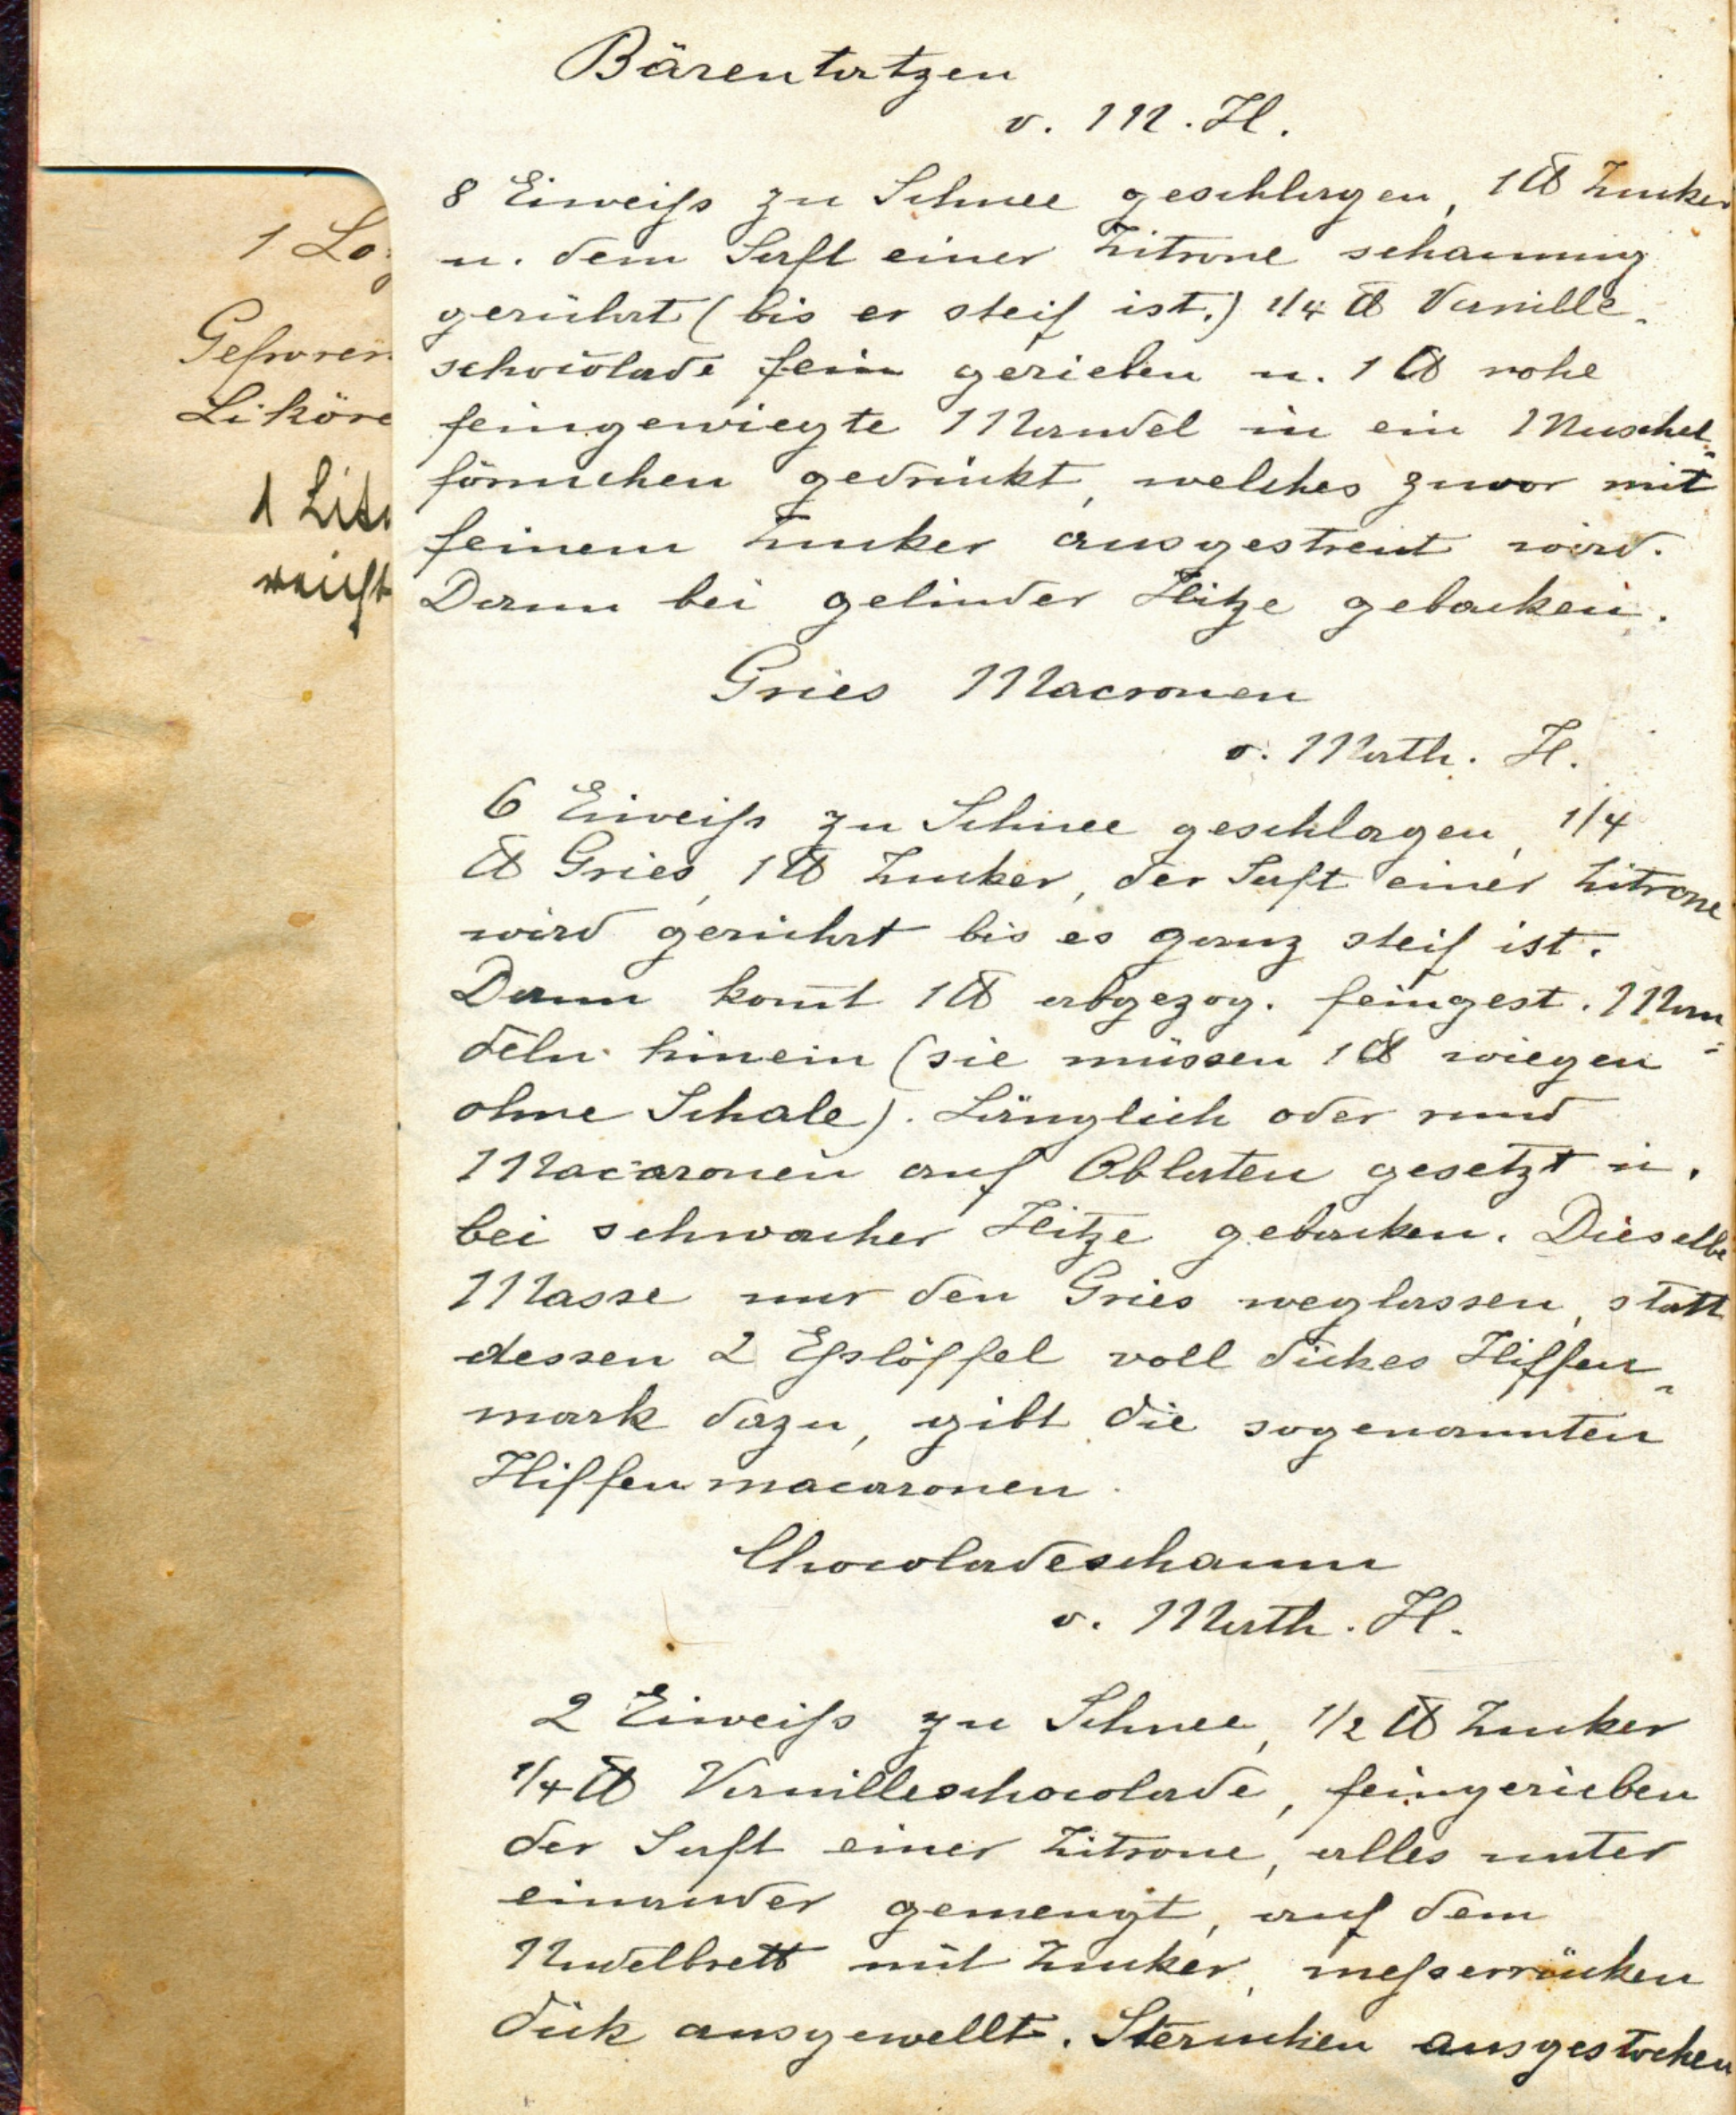 Bärentatzen
v. M. H.
8 Eiweiß zu Schnee geschlagen, 1 ℔ Zucker
u. dem Saft einer Zitrone schaumig
gerührt (bis er steif ist.) 1/4 ℔ Vanille-
schocolade fein gerieben u. 1 ℔ rohe
feingewiegte Mandel in ein Muschel-
förmchen gedrückt, welches zuvor mit
feinem Zucker ausgestreut wird.
Dann bei gelinder Hitze gebacken.
Gries Macronen
v. Math. H.
6 Eiweiß zu Schnee geschlagen, 1/4
℔ Gries, 1 ℔ Zucker, der Saft einer Zitrone
wird gerührt bis es ganz steif ist.
Dann kom̄t 1 ℔ abgezog. feingest. Man-
deln hinein (sie müssen 1 ℔ wiegen
ohne Schale). Länglich oder rund
Macaronen auf Oblaten gesetzt u.
bei schwacher Hitze gebacken. Dieselbe
Masse nur den Gries weglassen, statt
dessen 2 Eßlöffel voll dickes Hiffen-
mark dazu, gibt die sogenannten
Hiffenmacaronen.
Chocoladeschaum
v. Math. H.
2 Eiweiß zu Schnee, 1/2 ℔ Zucker
1/4 ℔ Vanilleschocolade, feingerieben
der Saft einer Zitrone, alles unter
einander gemengt, auf dem
Nudelbrett mit Zucker, meßerrücken
dick ausgewellt. Sternchen ausgestochen
1 Lo
Gefroren
Liköre
1 Lit